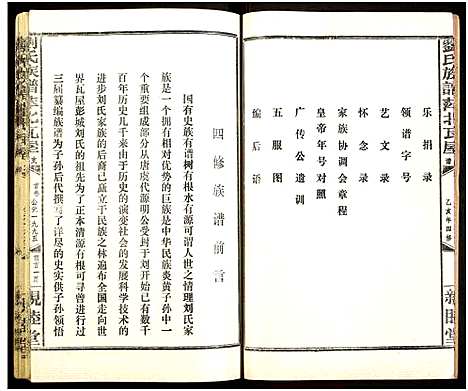 劉氏族譜萍北瓦屋
首
乙亥年四修
親睦堂
乐捐录
领谱字号
艺文录
怀念录
家族协调会章程
皇帝年号对照
广传公遗训
五服图
编后语
四修族谱前言
国有史族有谱树有根水有源可谓人世之情理刘氏家
族是一个拥有相对优势的巨族是中华民族炎黄子孙中一
个重要组成部分从唐虞代源明公受封于刘开始已具数千
百年历史几千来由于历史的演变社会的发展科学技术的
进步刘氏家族的后裔已矗立于民族之林遍布全国走向世
界瓦屋彭城刘氏家族的历史真相有根可寻曾进行过
三届纂编族谱为子孙后代撰写了详尽的史实供子孙领悟
劉氏族譜萍北瓦屋
親睦堂